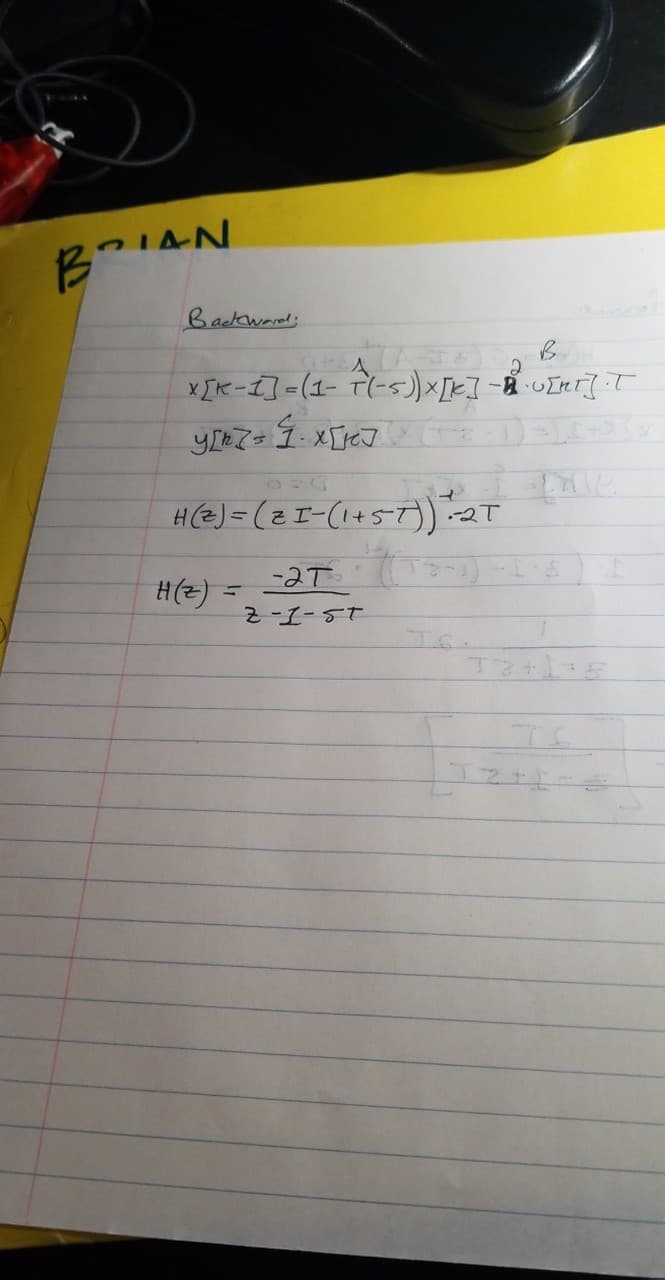 BRIAN
Backward:
A 2 B
x[k-1]=(1-T(-5))x[k]-2·u[kT]·T
C
y[k]=1·x[k]
H(z)=(zI-(1+5T))⁻¹·-2T
H(z) = -2T
z-1-5T